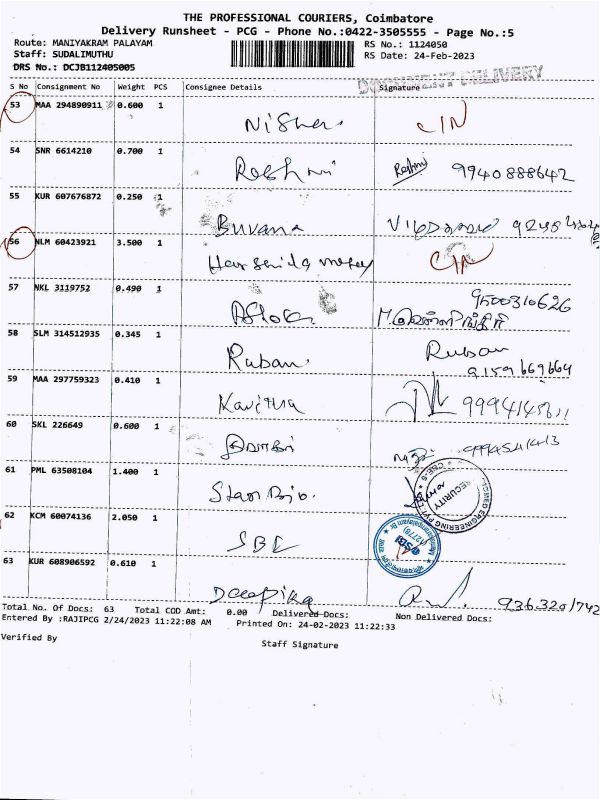 THE PROFESSIONAL COURIERS, Coimbatore
Delivery Runsheet - PCG - Phone No.:0422-3505555 - Page No.:5
Route: MANIYAKRAM PALAYAM RS No.: 1124050
Staff: SUDALIMUTHU RS Date: 24-Feb-2023
DRS No.: DCJB112405005
DOCUMENT DELIVERY
S No Consignment No Weight PCS Consignee Details Signature
53 MAA 294890911 0.600 1
Nisha. CIN
54 SNR 6614210 0.700 1
Reshmi Reshmi 9940888642
55 KUR 607676872 0.250 1
Buvana
56 NLM 60423921 3.500 1
CIN
57 NKL 3119752 0.490 1
9500310626
Ashok
58 SLM 314512935 0.345 1
Ruban. Ruban
9159669664
59 MAA 297759323 0.410 1
Kavitha
60 SKL 226649 0.600 1
61 PML 63508104 1.400 1
Star Bio. SECURITY
62 KCM 60074136 2.050 1
SBI SBI
63 KUR 608906592 0.610 1
Deepika
Total No. Of Docs: 63 Total COD Amt: 0.00 Delivered Docs: Non Delivered Docs:
Entered By :RAJIPCG 2/24/2023 11:22:08 AM Printed On: 24-02-2023 11:22:33
Verified By Staff Signature